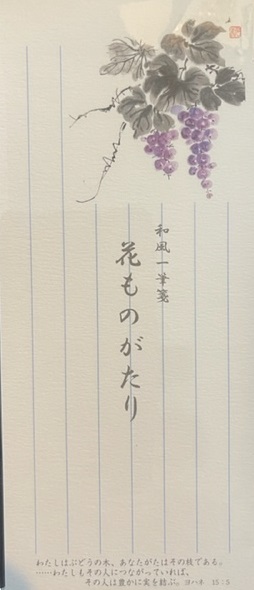 和風一筆箋
花ものがたり
わたしはぶどうの木、あなたがたはその枝である。
……わたしもその人につながっていれば、
その人は豊かに実を結ぶ。ヨハネ 15:5